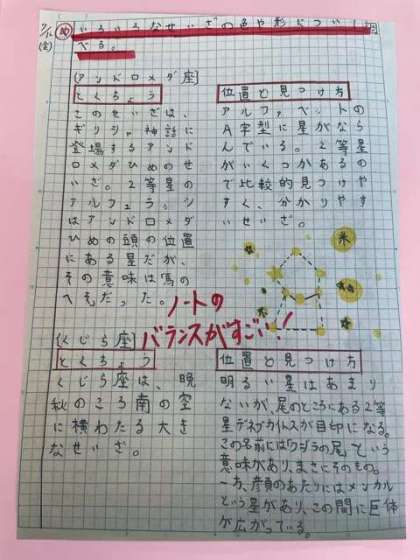 いろいろなせいざの色や形について調
べる。
[アンドロメダ座]
とくちょう
このせいざは、
ギリシャ神話に
登場するアンド
ロメダひめのせ
いざ。2等星の
アルフェラッツ
はアンドロメダ
ひめの頭の位置
にある星だが、
その意味は馬の
へそだった。
位置と見つけ方
アルファベットの
A字型に星がなら
んでいる。2等星
がいくつかあるの
で比較的見つけや
すく、分かりやす
いせいざ。
ノートの
バランスがすごい!
[くじら座]
とくちょう
くじら座は、晩
秋のころ南の空
に横わたる大き
なせいざ。
位置と見つけ方
明るい星はあまり
ないが、尾のところにある2等
星デネブカイトスが目印になる。
この名前には「クジラの尾」という
意味があり、まさにそのもの。
一方、彦頁のあたりにはメンカル
という星があり、この間に巨体
が広がっている。